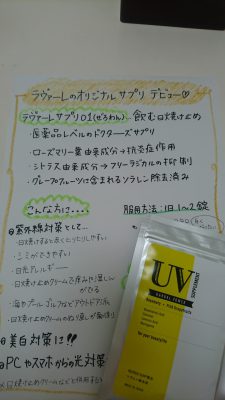 ラヴァーレのオリジナルサプリ デビュー♡
ラヴァーレサプリ01(ぜろわん) 飲む日焼け止め
・医薬品レベルのドクターズサプリ
・ローズマリー葉由来成分→抗炎症作用
・シトラス由来成分→フリーラジカルの抑制
・グレープフルーツに含まれるソラレン除去済み
こんな方に・・・・
服用方法:1日1〜2錠
紫外線対策として…
・日焼けすると赤くヒリヒリしやすい
・シミができやすい
・日光アレルギー
・日焼け止めクリームで痒みや湿しん
がでる
・海やプール ゴルフなどアウトドア派
・日焼け止めクリームのぬり直しが面倒
美白対策に!!
PCやスマホからの光対策
日焼け止めクリームなどと併用
UV
SUPPLEMENTS